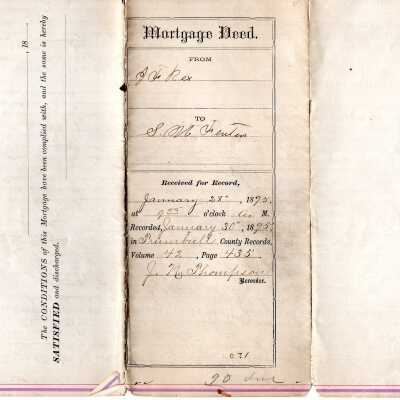 Mortgage Deed.
FROM
J F Rex
TO
S. M Fenton
Received for Record,
January 28th, 1875.
at 9 00 o'clock M.
Recorded, January 30th, 1875.
in Trumbull County Records,
Volume 42, Page 435.
J. N. Thompson
Recorder.
90
18
The CONDITIONS of this Mortgage have been complied with, and the same is hereby
SATISFIED and discharged.